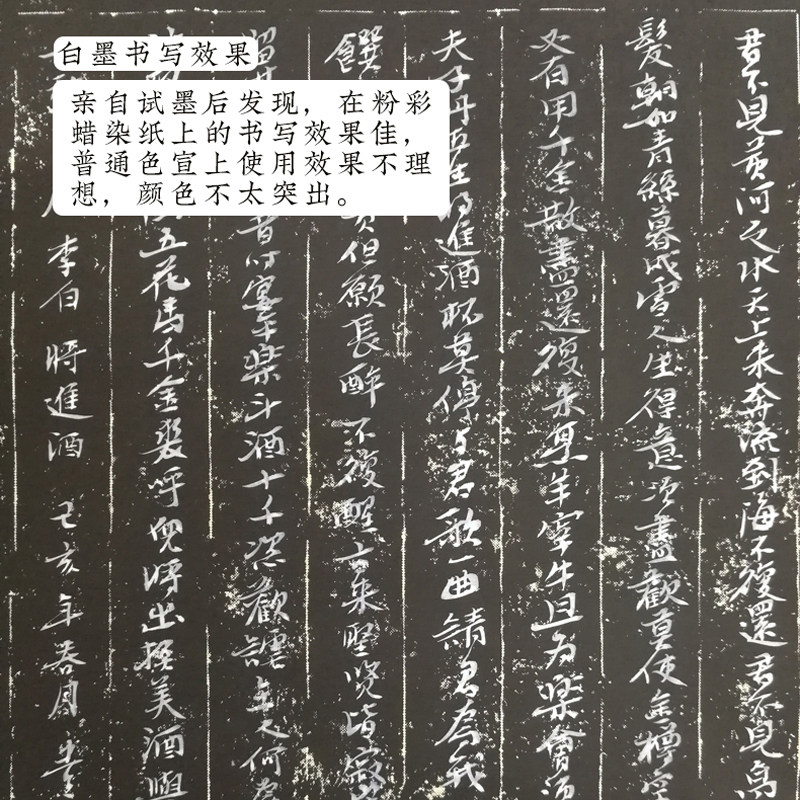 白墨书写效果
亲自试墨后发现，在粉彩
蜡染纸上的书写效果佳，
普通色宣上使用效果不理
想，颜色不太突出。
君不見黄河之水天上来奔流到海不復還君不見高
髮朝如青絲暮成雪人生得意須盡歡莫使金樽空
必有用千金散盡還復来烹羊宰牛且为樂會須
夫子丹丘生将進酒杯莫停与君歌一曲請君为我
饌 貴但願長醉不復醒古来聖贤皆寂
昔时宴平樂斗酒十千恣歡謔主人何为
五花馬千金裘呼兒将出換美酒與
李白將進酒 己亥年春月書